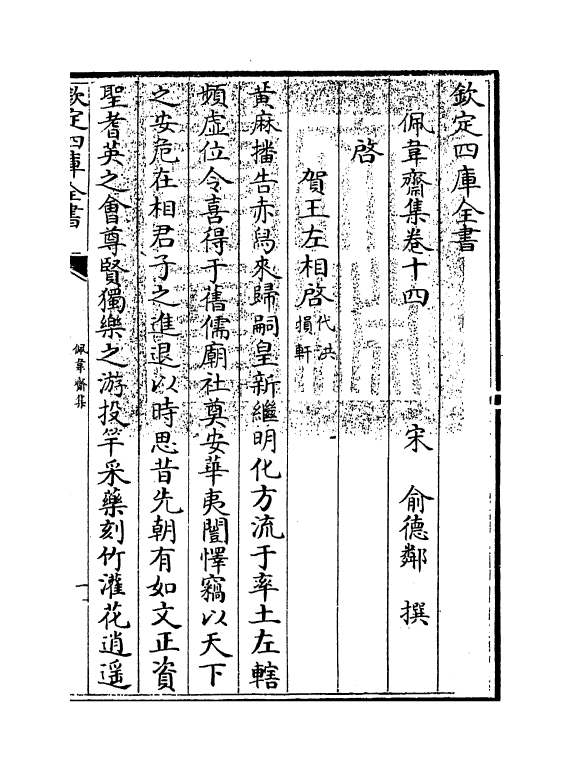 欽定四庫全書
佩韋齋集卷十四
宋 俞德鄰 撰
啓
賀王左相啓代洪損軒
黃麻播告赤舄來歸嗣皇新繼明化方流于率土左轄
頻虛位令喜得于舊儒廟社奠安華夷闓懌竊以天下
之安危在相君子之進退以時思昔先朝有如文正資
聖耆英之會尊賢獨樂之游投竿采藥刻竹灌花逍遥
欽定四庫全書
佩韋齋集
一